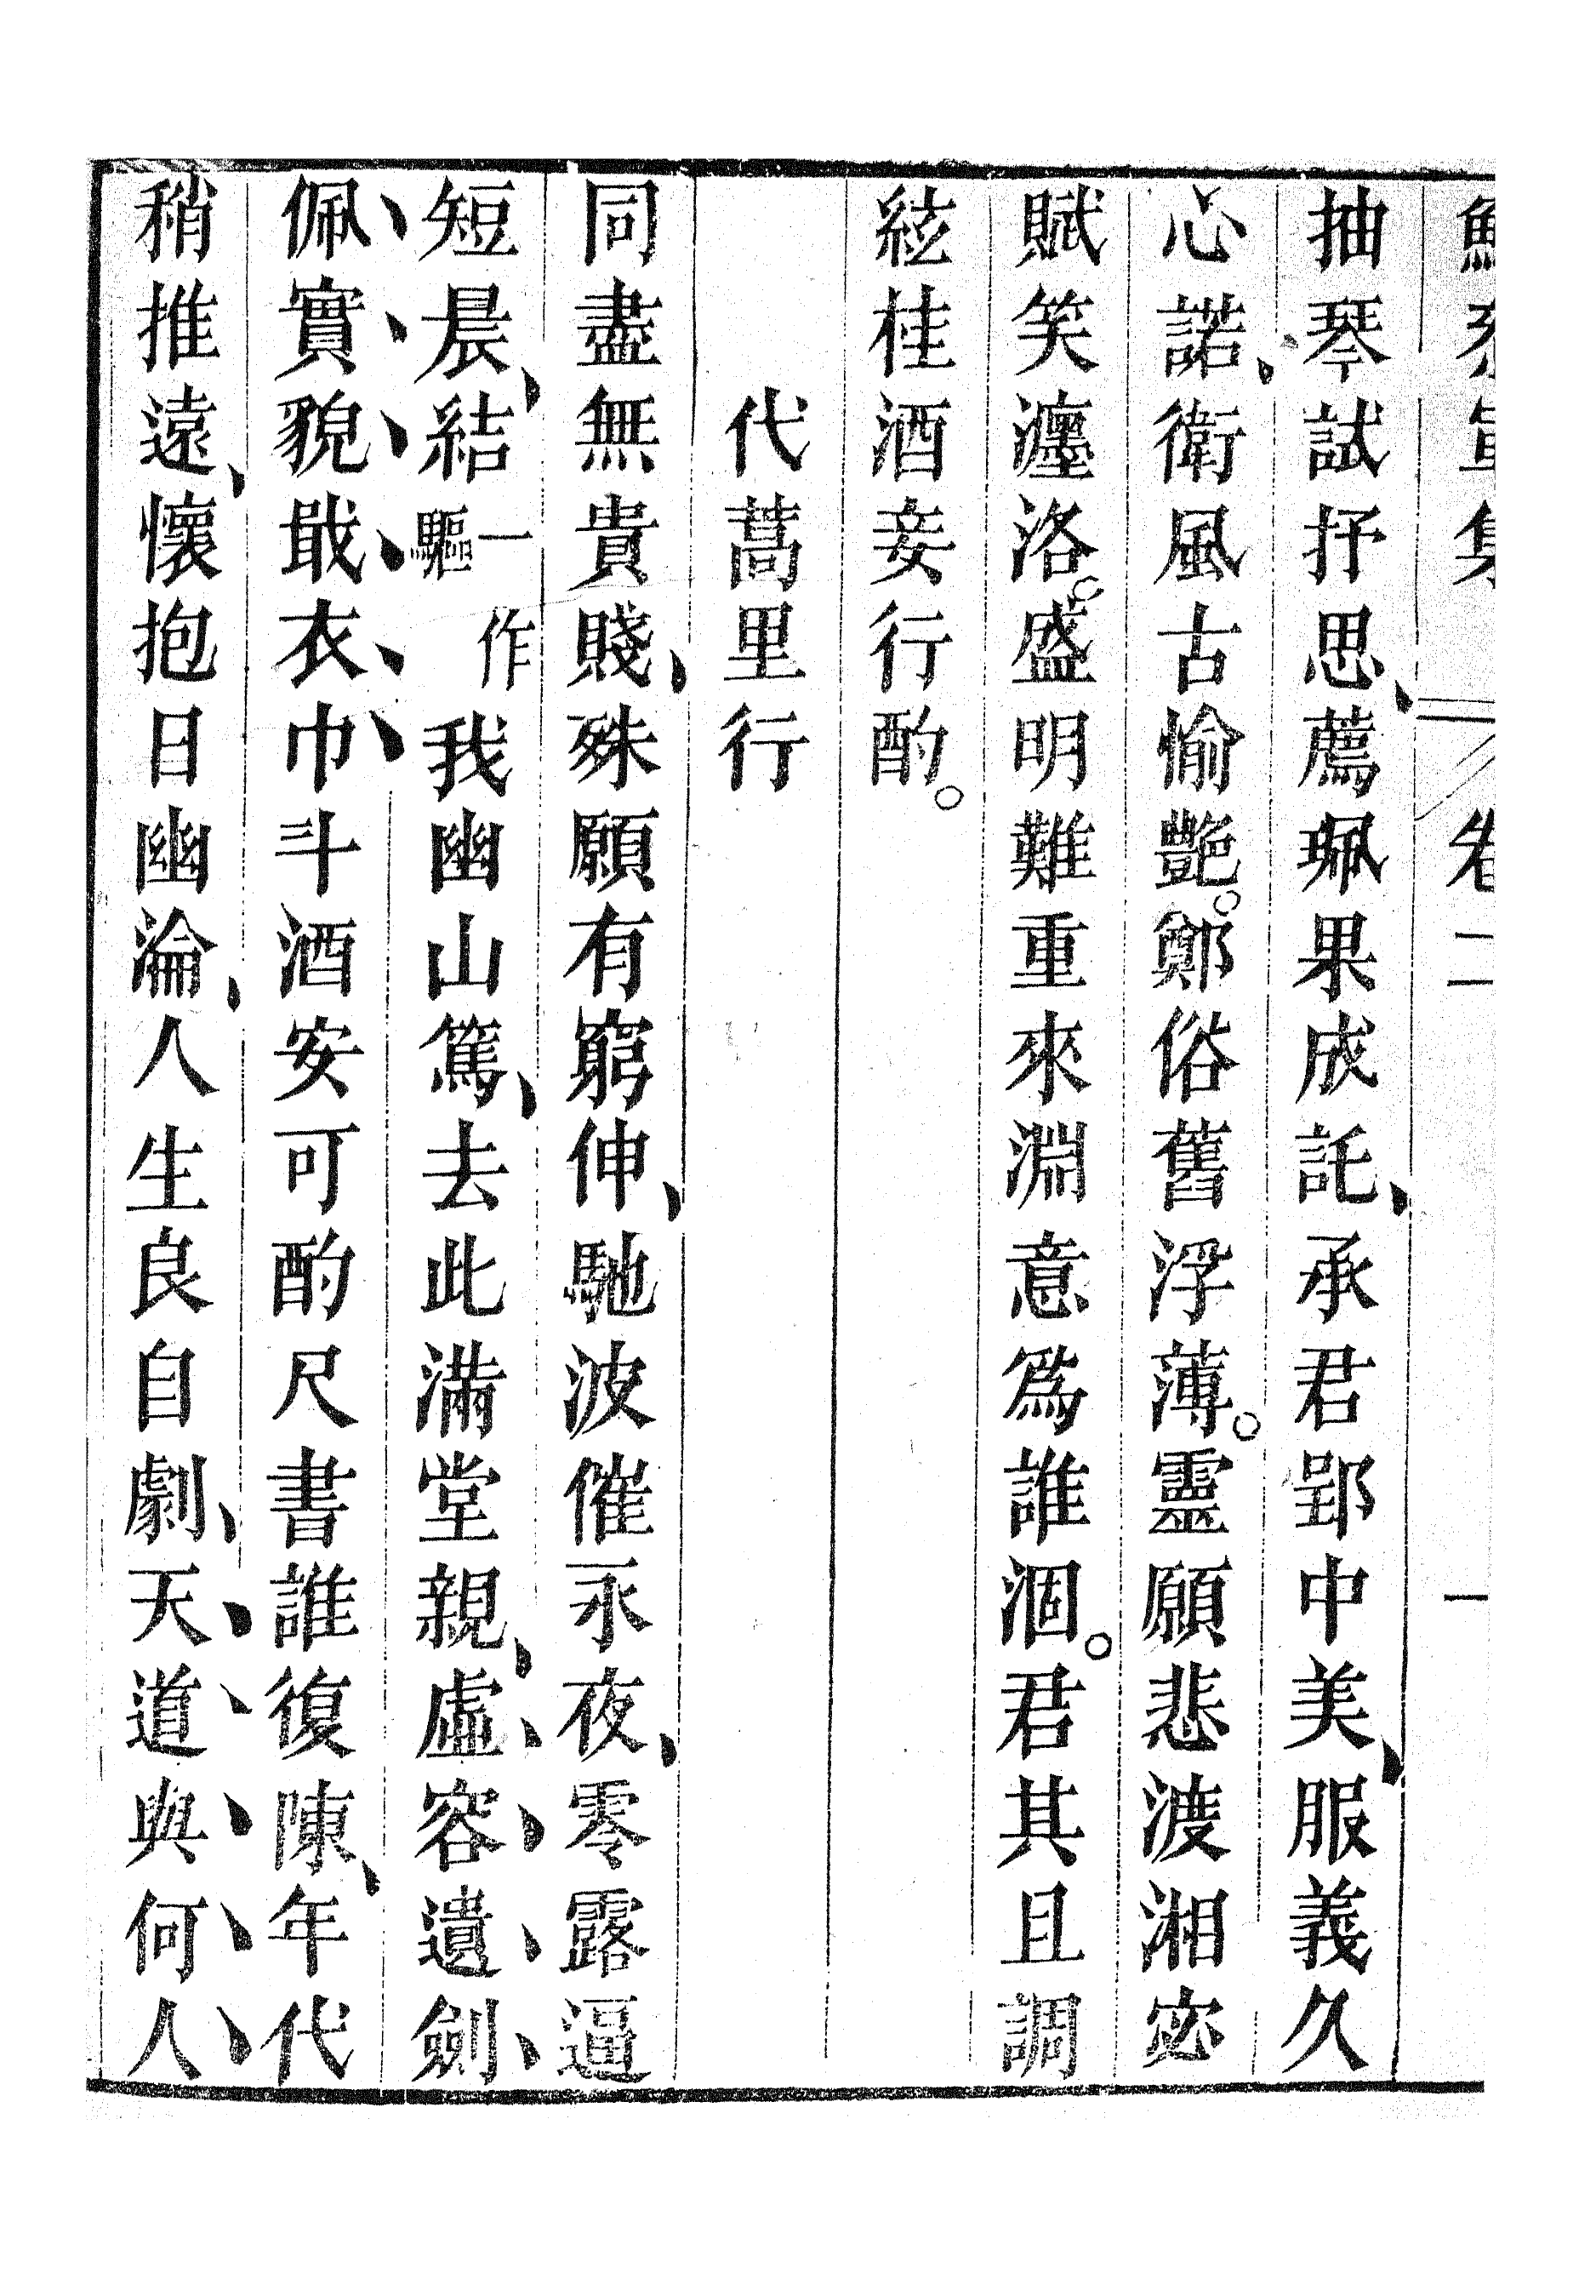 鮑參軍集 卷二 一
抽琴試抒思薦珮果成託承君郢中美服義久
心諾衛風古愉艶鄭俗舊浮薄靈願悲渡湘宓
賦笑瀍洛盛明難重來淵意爲誰涸君其且調
絃桂酒妾行酌
代蒿里行
同盡無貴賤殊願有窮伸馳波催永夜零露逼
短晨結一作驅我幽山駕去此滿堂親虛容遺劍
佩實貌戢衣巾斗酒安可酌尺書誰復陳年代
稍推遠懷抱日幽淪人生良自劇天道與何人